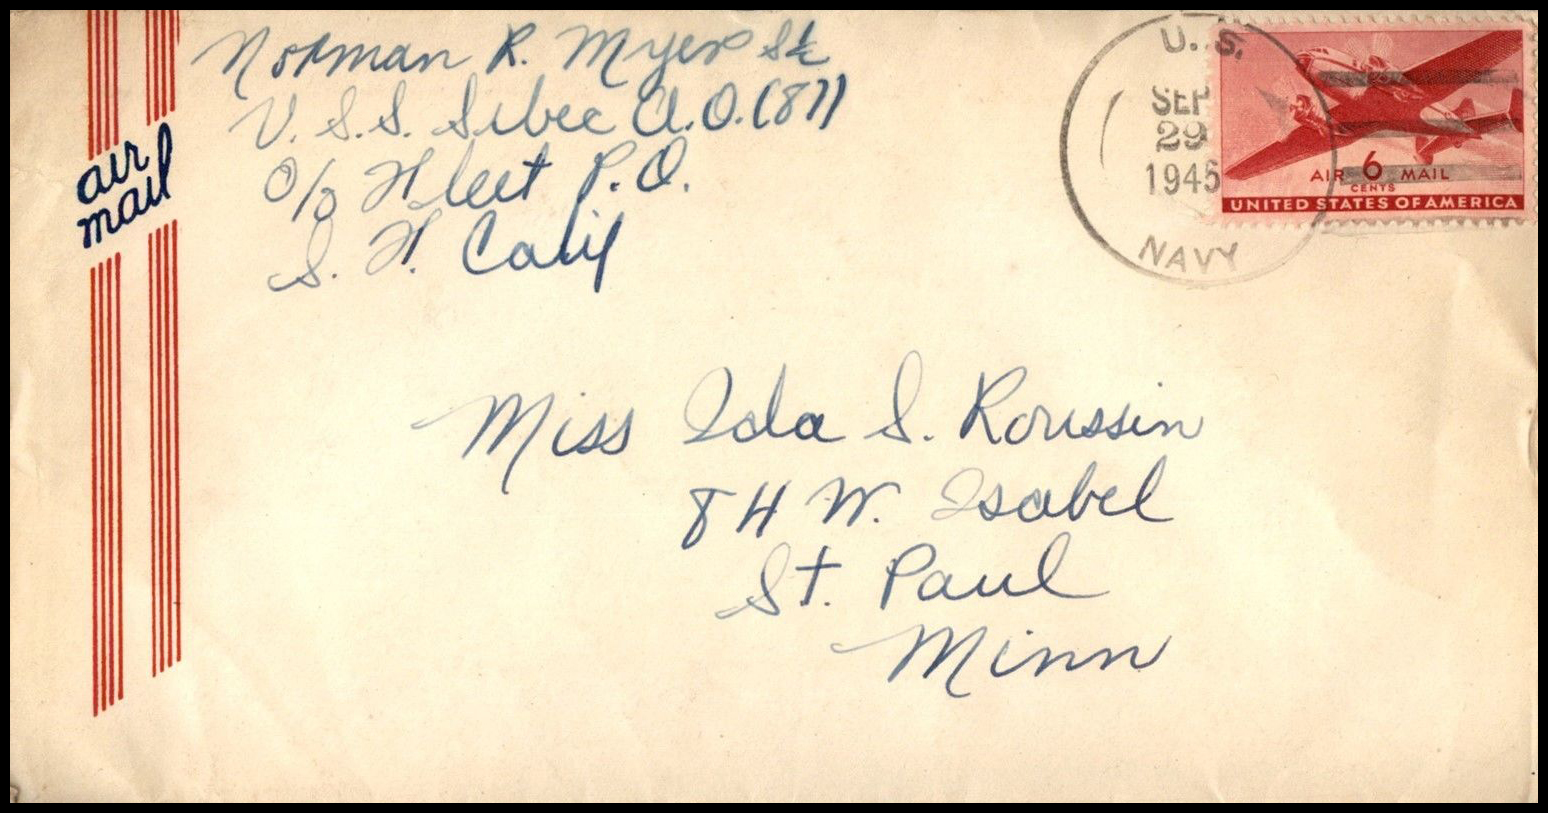 air
mail
Norman R. Myers S1/c
U.S.S. Sibec A.O.(87)
c/o Fleet P.O.
S. F. Calif
U.S.
SEP
29
1945
NAVY
AIR 6 MAIL
CENTS
UNITED STATES OF AMERICA
Miss Ida S. Roussin
84 W. Isabel
St. Paul
Minn